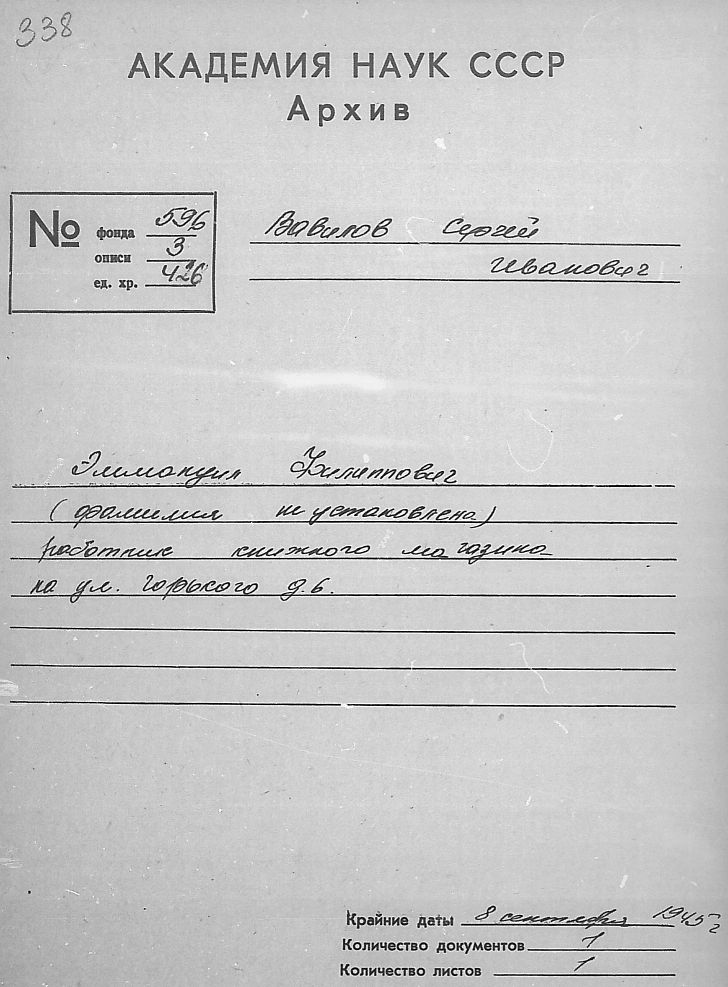 338
АКАДЕМИЯ НАУК СССР
Архив
№ фонда 596
описи 3
ед. хр. 426
Вавилов Сергей
Иванович
Эммануил Филиппович
(фамилия не установлена)
работник книжного магазина
на ул. Горького д.6.
Крайние даты 8 сентября 1945 г
Количество документов 1
Количество листов 1